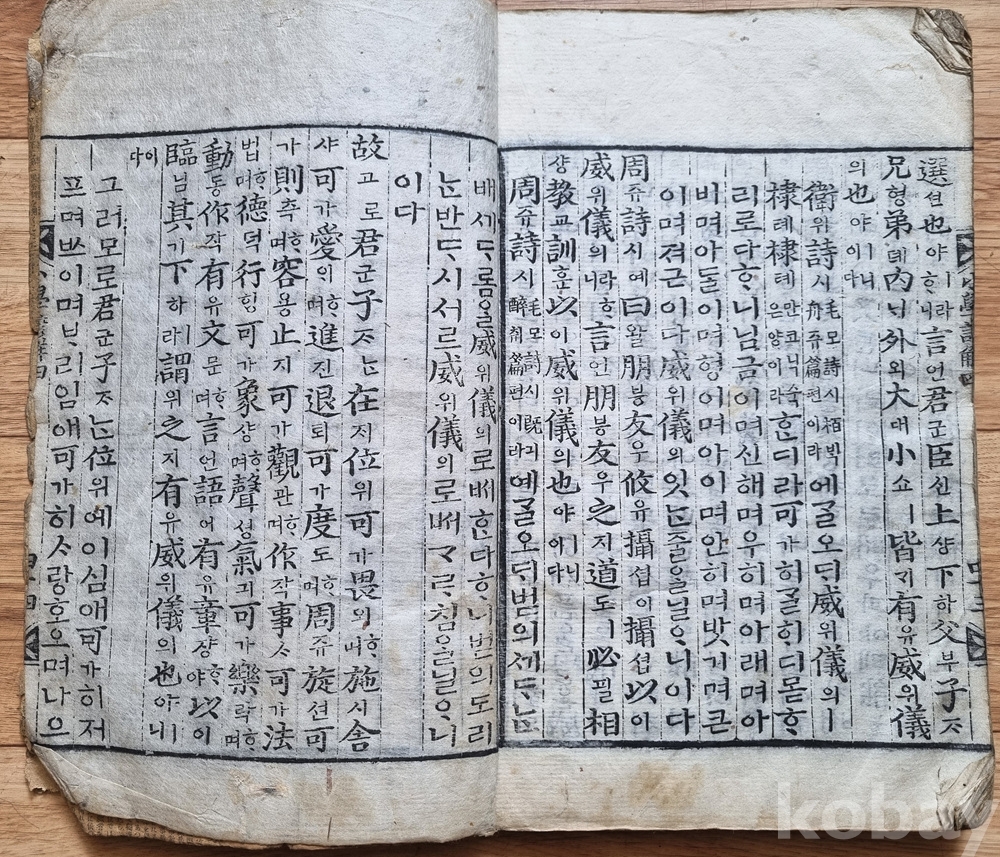 選션也야ㅣ라ᄒᆞ니言언君군臣신上샹下하父부子ᄌᆞ
兄형弟뎨內ᄂᆡ外외大대小쇼ㅣ皆ᄀᆡ有유威위儀
의也야ㅣ니이다
衛위詩시毛모詩시栢ᄇᆡᆨ舟쥬篇편이라에ᄀᆞᆯ오ᄃᆡ威위儀의ㅣ
棣톄棣톄만코닉숙은양이라ᄒᆞᆫ디라可가히ᄀᆞᆯᄒᆡ디몯ᄒᆞ
리로다ᄒᆞ니님금이며신해며우히며아래며아
비며아ᄃᆞᆯ이며형이며아이며안히며밧기며큰
이며져근이다威위儀의잇ᄂᆞᆫ줄을닐ᄋᆞ니이다
周쥬詩시예曰왈朋붕友우攸유攝셥이攝셥以이
威위儀의라ᄒᆞ니言언朋붕友우之지道도ㅣ必필相
샹敎교訓훈以이威위儀의也야ㅣ니이다
周쥬詩시毛모詩시旣긔醉취篇편이라예ᄀᆞᆯ오ᄃᆡ벋의셰ᄃᆞᄂᆞᆫ
배셰ᄃᆞ롬ᄋᆞᆯ威위儀의로ᄡᅥᄒᆞᆫ다ᄒᆞ니벋의도리
ᄂᆞᆫ반ᄃᆞ시서르威위儀의로ᄡᅥᄀᆞᄅᆞ침ᄋᆞᆯ닐ᄋᆞ니
이다
故고로君군子ᄌᆞᄂᆞᆫ在ᄌᆡ位위可가畏외ᄒᆞ며施시舍
샤可가愛ᄋᆡᄒᆞ며進진退퇴可가度도ᄒᆞ며周쥬旋션可
가則측ᄒᆞ며容용止지可가觀관ᄒᆞ며作작事ᄉᆞ可가法
법ᄒᆞ며德덕行ᄒᆡᆼ可가象샹ᄒᆞ며聲셩氣긔可가樂락ᄒᆞ며
動동作작有유文문ᄒᆞ며言언語어有유章쟝ᄒᆞ야以이
臨님其기下하ㅣ라謂위之지有유威위儀의也야ㅣ니
이다
그러모로君군子ᄌᆞᄂᆞᆫ位위예이심애可가히저
프며ᄡᅳ이며ᄇᆞ리임애可가히ᄉᆞ랑ᄒᆞ오며나ᄋᆞ
kobay